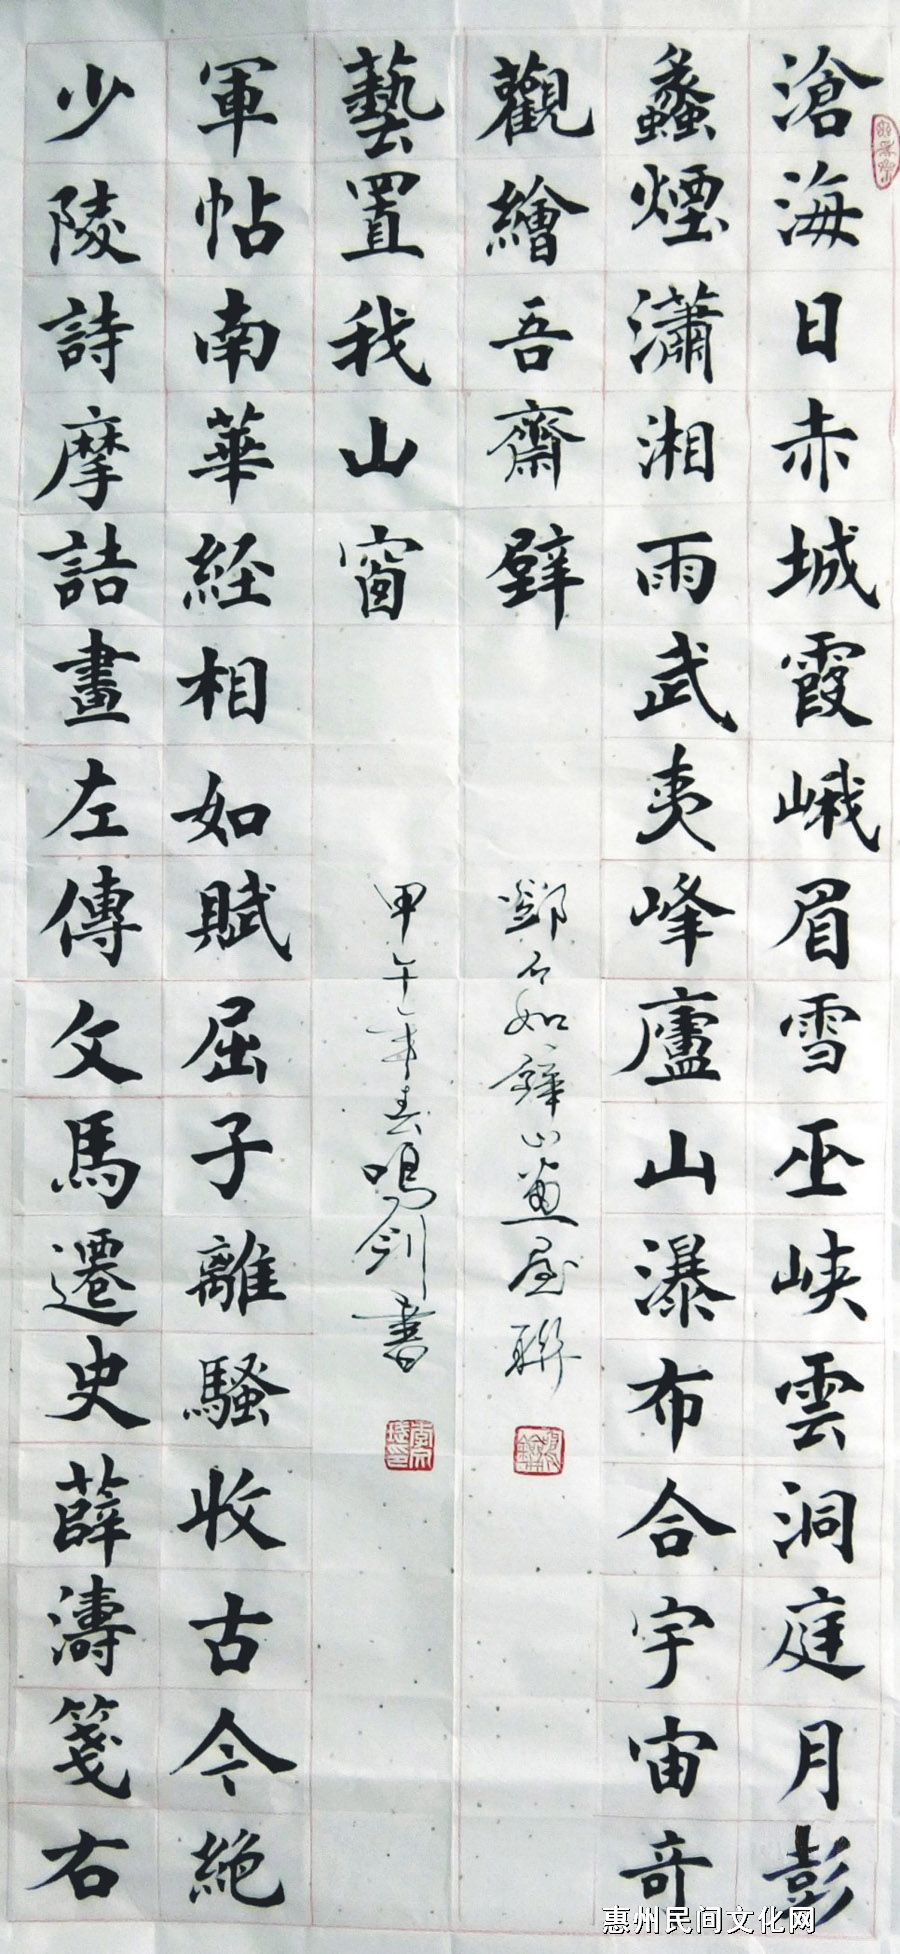 滄海日赤城霞峨眉雪巫峽雲洞庭月彭
蠡煙瀟湘雨武夷峰廬山瀑布合宇宙奇
觀繪吾齋壁
鄧石如山畫屋聯
少陵詩摩詰畫左傳文馬遷史薛濤箋右
軍帖南華経相如賦屈子離騷收古今絶
藝置我山窗
甲午年春鳴劍書
惠州民间文化网